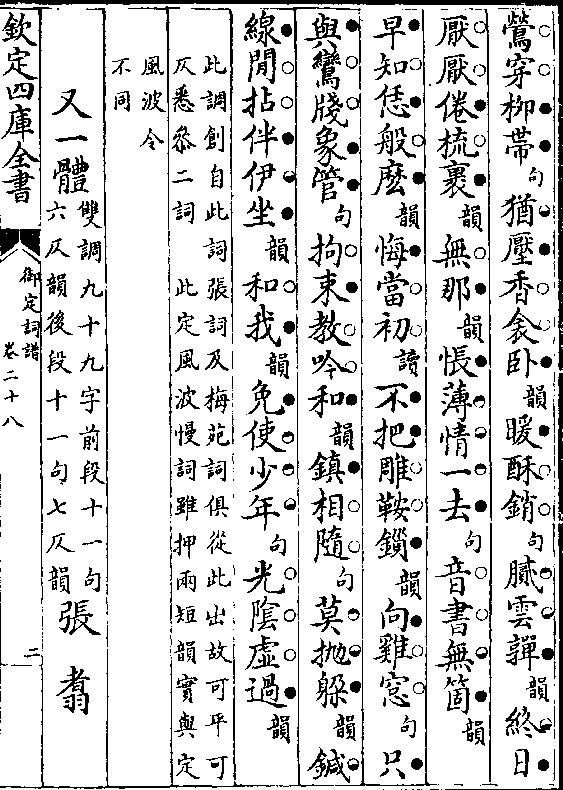 鶯穿柳帶句猶壓香衾卧韻暖酥銷句膩雲嚲韻終日
厭厭倦梳裹韻無那韻悵薄情一去句音書無箇韻
早知恁般麽韻悔當初讀不把雕鞍鎖韻向雞窓句只
與鸞牋象管句拘束教吟和韻鎮相隨句莫抛躱韻鍼
線閒拈伴伊坐韻和我韻免使少年句光陰虛過韻
此調創自此詞張詞及梅苑詞俱從此出故可平可
仄悉叅二詞 此定風波慢詞雖押兩短韻實與定
風波令
不同
又一體雙調九十九字前段十一句
六仄韻後段十一句七仄韻張翥
欽定四庫全書
御定詞譜
卷二十八
二